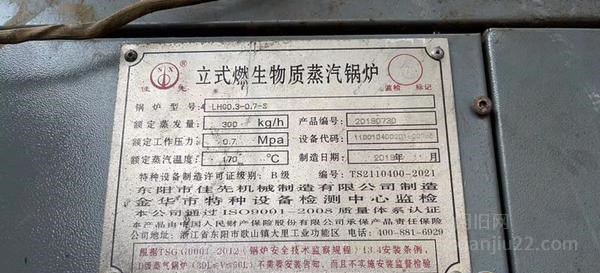 佳先
立式燃生物质蒸汽锅炉
监检 标记
锅炉型号: LHG0.3-0.7-S
额定蒸发量: 300 kg/h 产品编号: 20190730
额定工作压力: 0.7 Mpa 设备代码:
额定蒸汽温度: 170 ℃ 制造日期: 2019年11月
特种设备制造许可证级别: B级 编号: TS2110400-2021
东阳市佳先机械制造有限公司制造
金华市特种设备检测中心监检
本公司通过ISO9001-2008质量体系认证
本产品由中国人民财产保险股份有限公司承保产品责任保险
公司地址: 浙江省东阳市歌山镇大里工业功能区 电话: 400-881-6929
根据TSG G0001-2012《锅炉安全技术监察规程》13.4安装条例,
D级蒸气锅炉(30L≤V≤50L)不需要安装告知,而且不实施安装监督检验
回旧网
huanjiu22.com